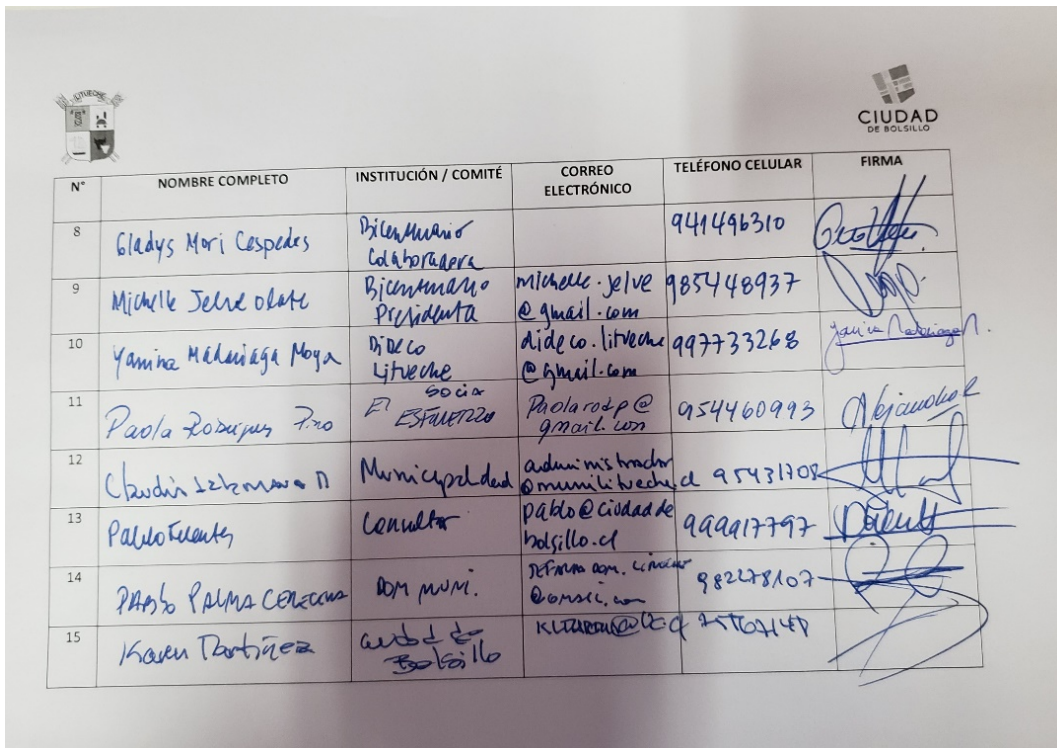 LITUECHE
CIUDAD
DE BOLSILLO
N° NOMBRE COMPLETO INSTITUCIÓN / COMITÉ CORREO ELECTRÓNICO TELÉFONO CELULAR FIRMA
8 Gladys Mori Cespedes Bicentenario Colaboradora 941496310
9 Michelle Jelve Olate Bicentenario Presidenta michelle.jelve@gmail.com 985448937
10 Yanina Madariaga Moya Dideco Litueche dideco.litueche@gmail.com 997733268
11 Paola Rodriguez Pino El Esfuerzo socia Paolarodp@gmail.com 954460993 Alejandra R
12 Claudia Municipalidad administrador@munilitueche.cl 95431708
13 Pablo Fuentes Consultor pablo@ciudaddebolsillo.cl 999917797
14 Pablo Palma DOM MUNI. 982278107
15 Karen Martinez Ciudad de Bolsillo